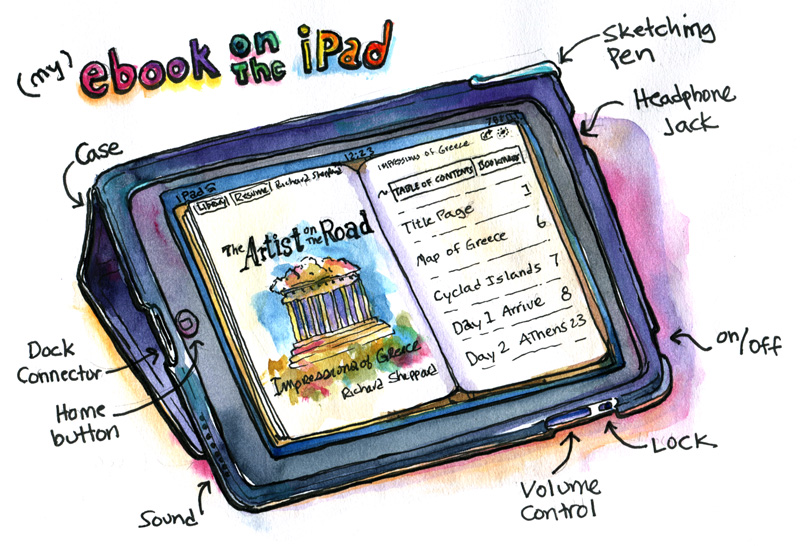 (my) ebook on The iPad
Sketching Pen
Headphone Jack
Case
iPad
12:23
Library
Resume
Richard Sheppard
The Artist on The Road
Impressions of Greece
Richard Sheppard
Impressions of Greece
TABLE OF CONTENTS
BOOKMARK
Title Page 1
Map of Greece 6
Cyclad Islands 7
Day 1 Arrive 8
Day 2 Athens 23
Dock Connector
Home button
Sound
Volume Control
Lock
on/off